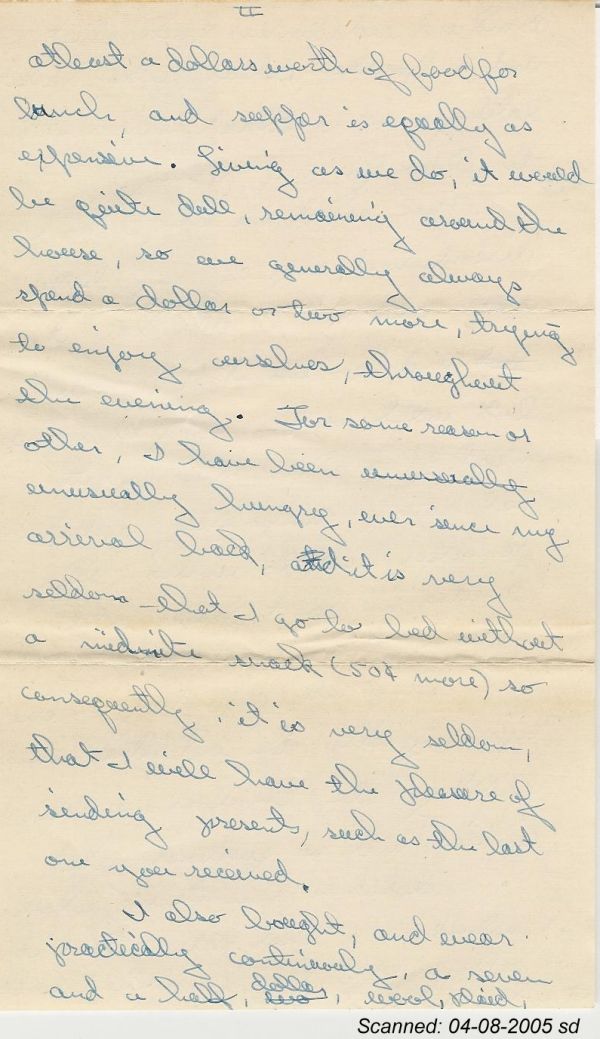 II
atleast a dollars worth of food for
lunch, and supper is equally as
expensive. Living as we do, it would
be quite dull, remaining around the
house, so we generally always
spend a dollar or two more, trying
to enjoy ourselves, throughout
the evening. For some reason or
other, I have been unusually
unusually hungry, ever sence my
arrival back, and it is very
seldom that I go to bed without
a midnite snack (50¢ more) so
consequently, it is very seldom,
that I will have the pleasure of
sending presents, such as the last
one you received.
I also bought, and wear
practically continuously, a seven
and a half, dollar, wool, plaid,
Scanned: 04-08-2005 sd